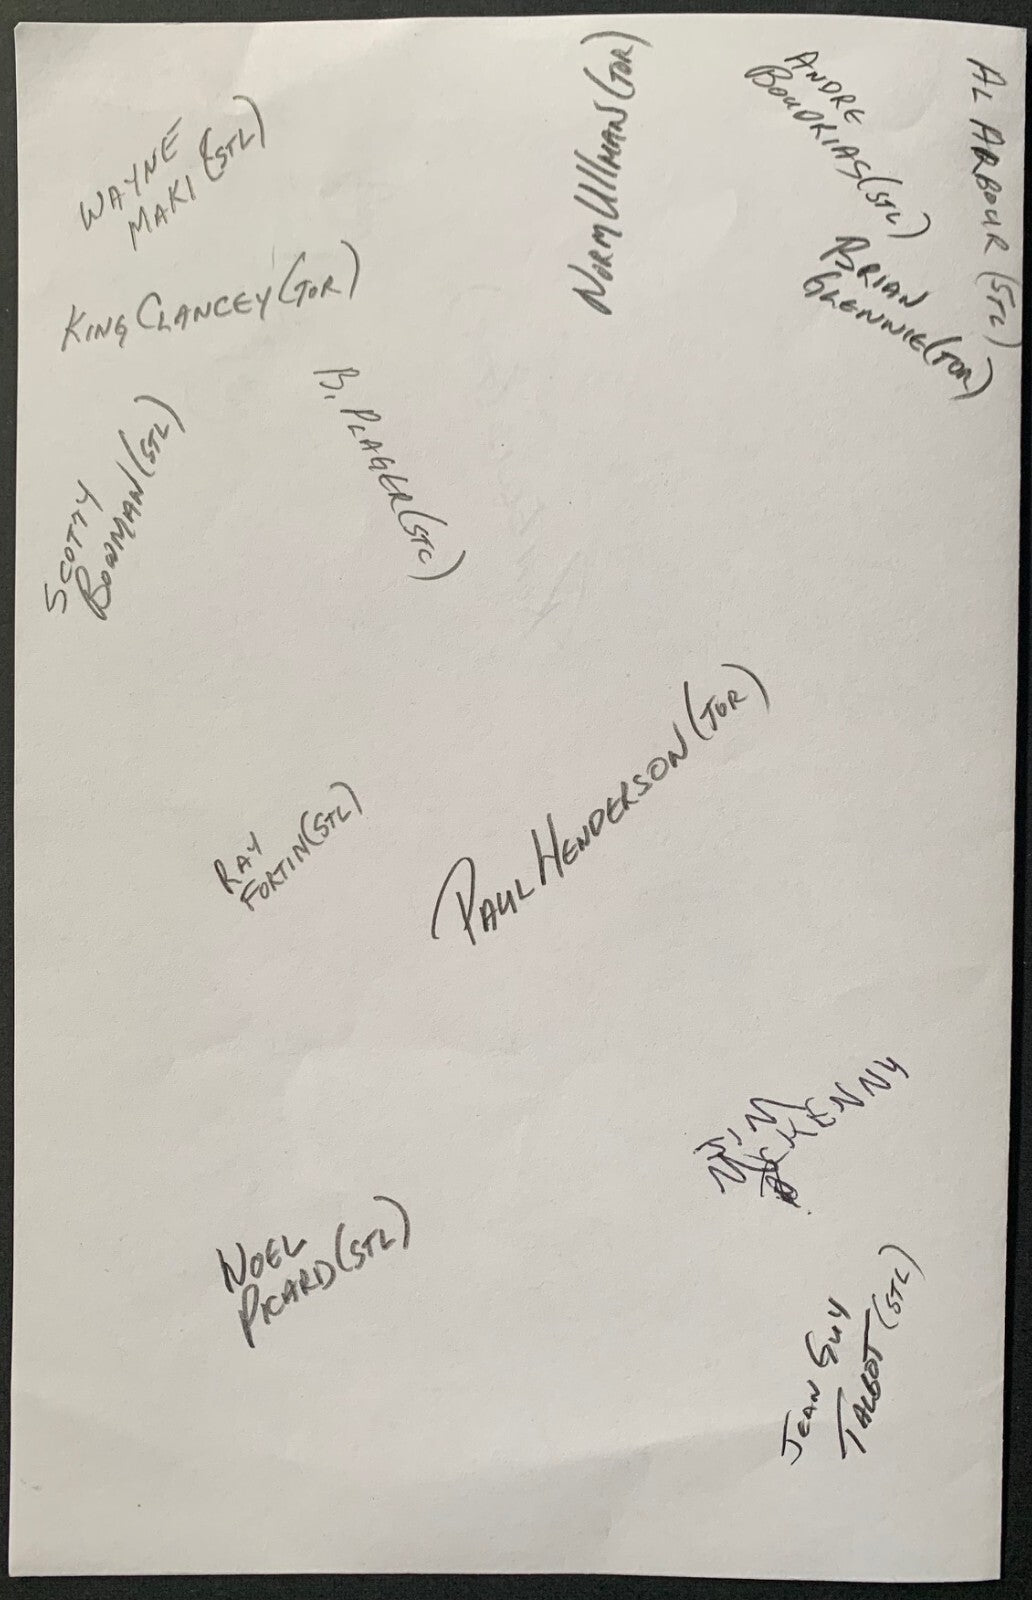 WAYNE
MAKI (STL)
KING CLANCEY (TOR)
SCOTTY
BOWMAN (STL)
B. PLAGER (STL)
NORM UllMAN (TOR)
ANDRE
BOUDRIAS (STL)
AL ARBOUR (STL)
BRIAN
GLENNIE (TOR)
RAY
FORTIN (STL)
PAUL HENDERSON (TOR)
JIM
McKENNY
NOEL
PICARD (STL)
JEAN GUY
TALBOT (STL)